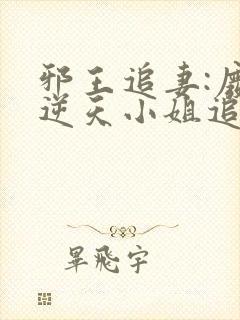 邪王追妻:
逆天小姐追
畢飛宇